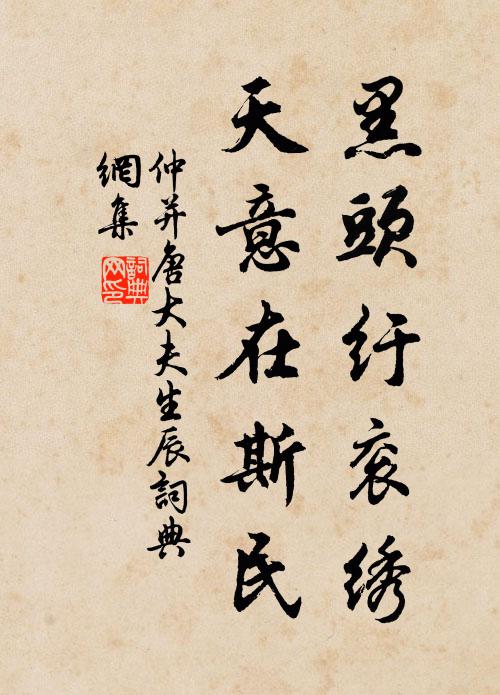 黑頭纡衮绣
天意在斯民
仲并唐大夫生辰詞典
網集
詞典
网印